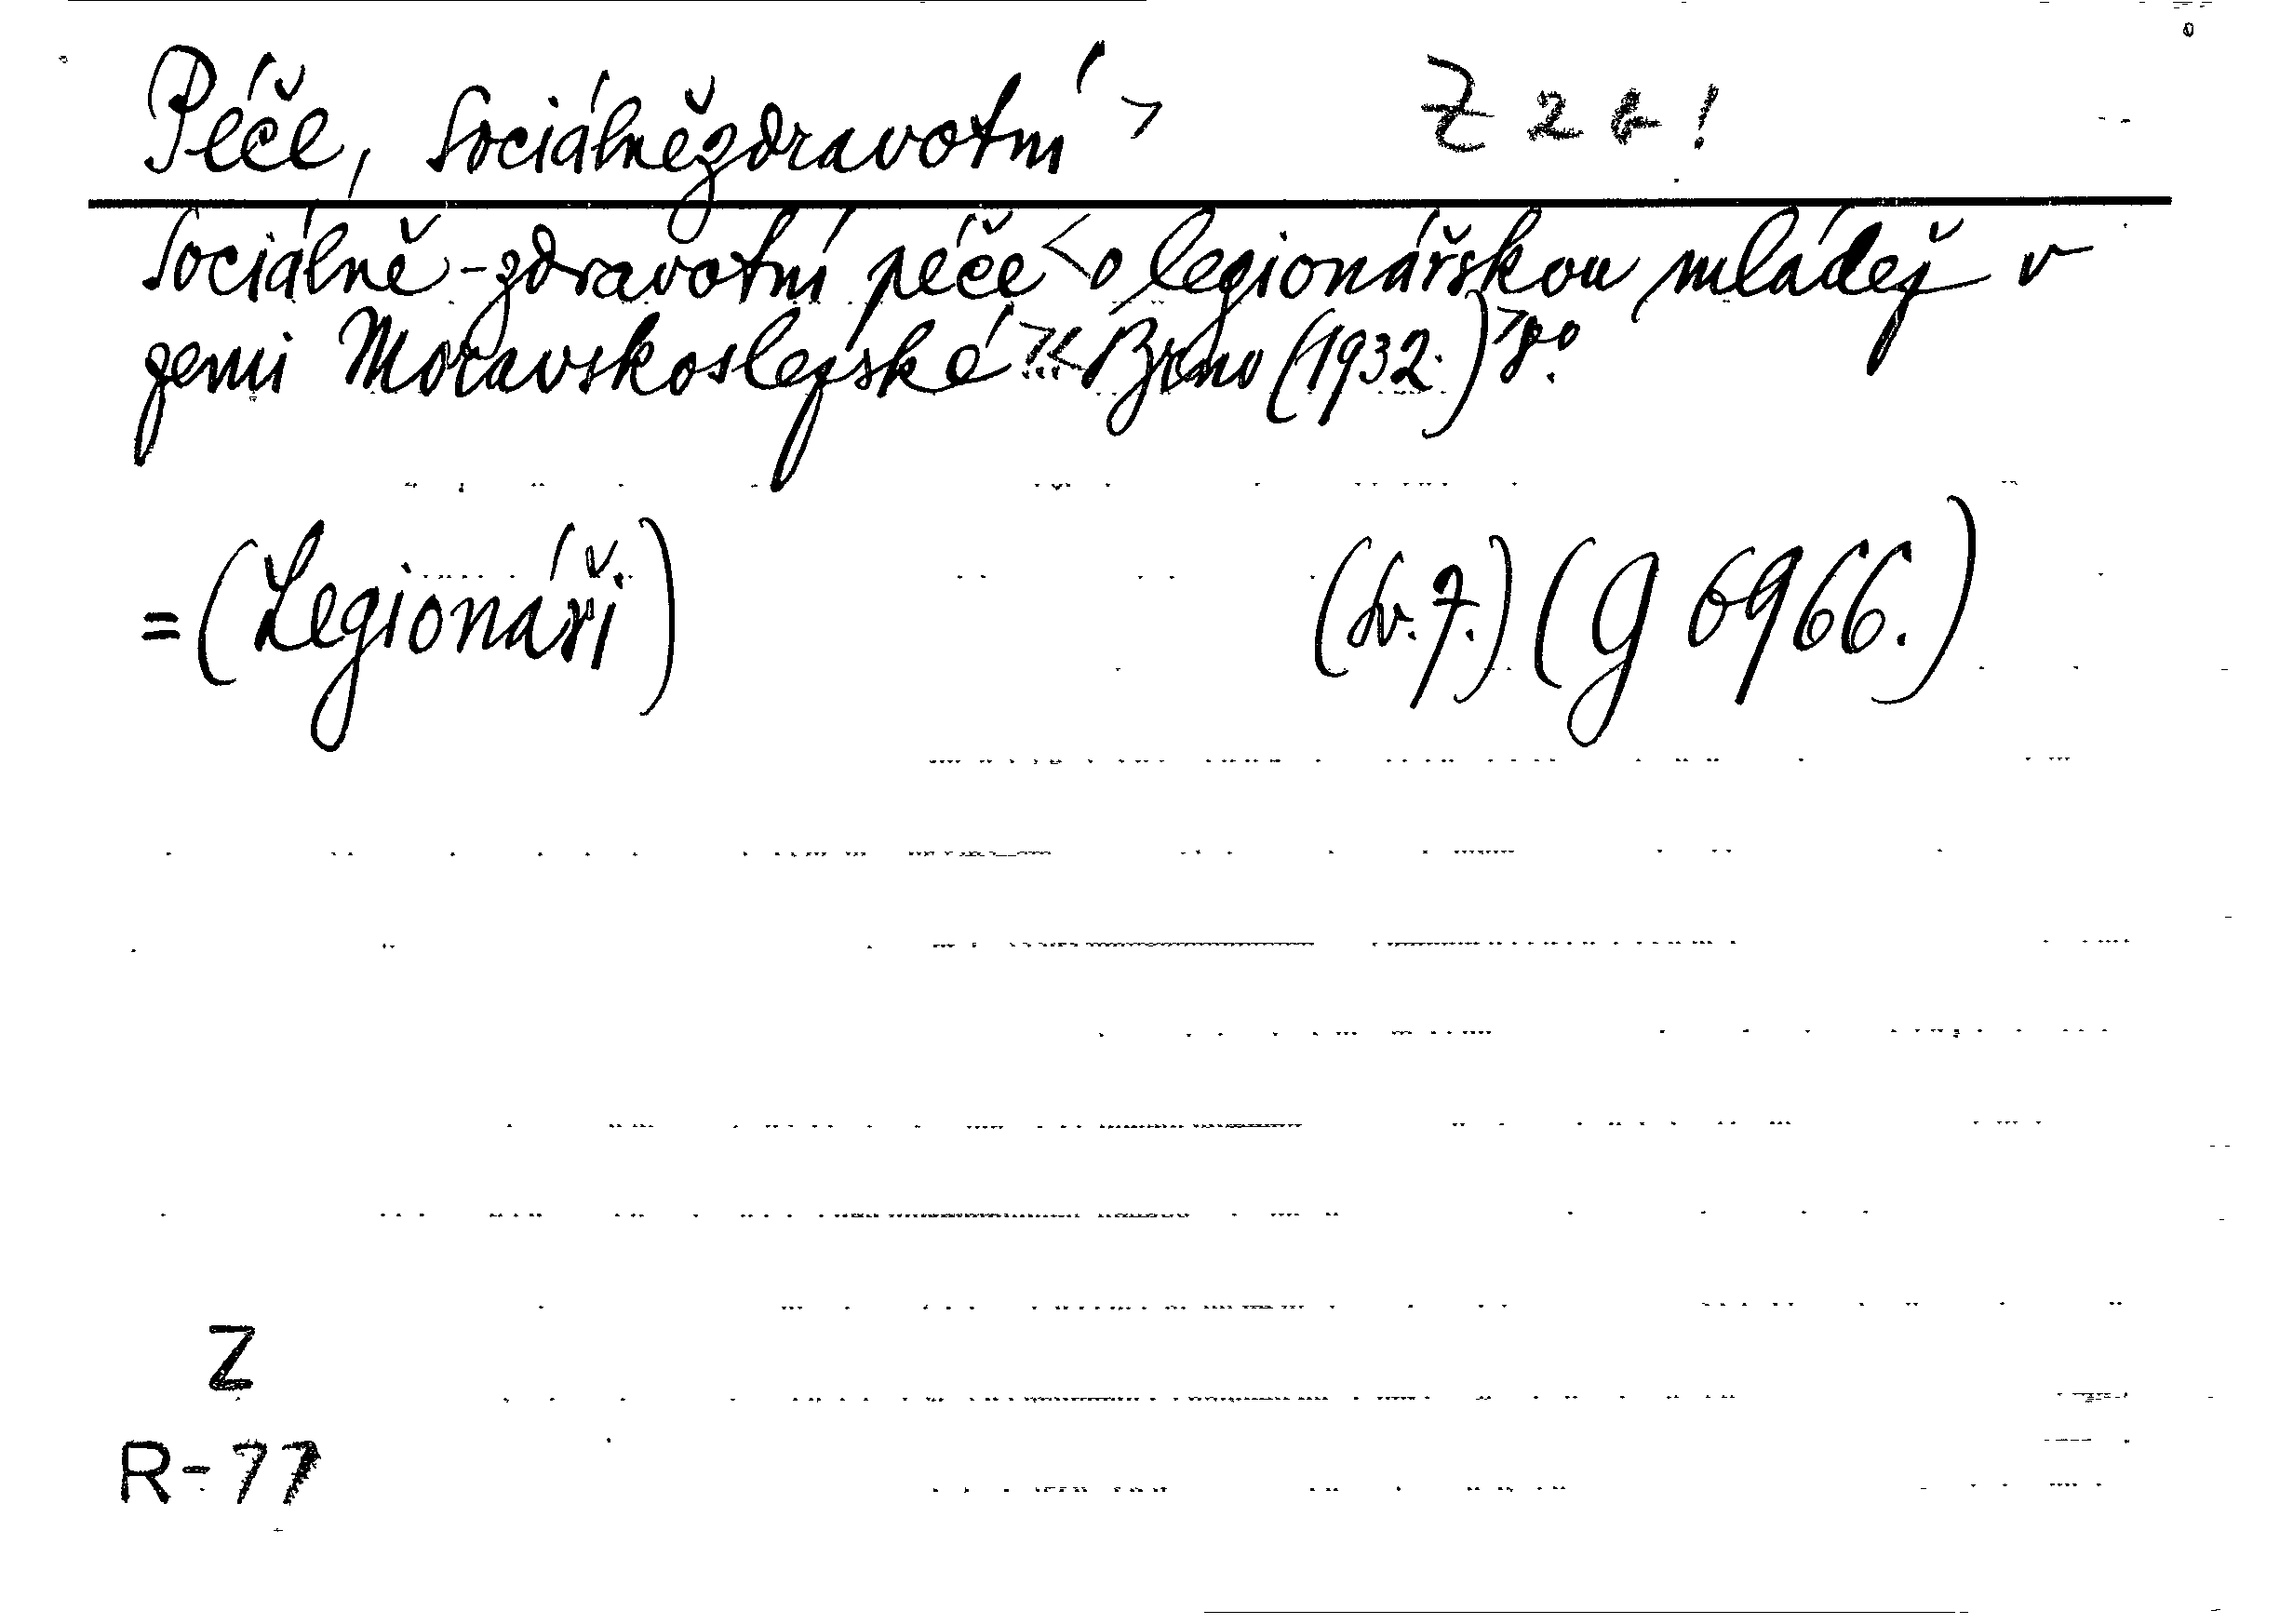 Péče, Sociálnězdravotní > Z 2 b !
Sociálně-zdravotní péče < o legionářskou mládež v
zemi Moravskoslezské >< Brno (1932.) > 8°.
= (Legionáři) (Sv. 7.) (G 6966.)
Z
R-77